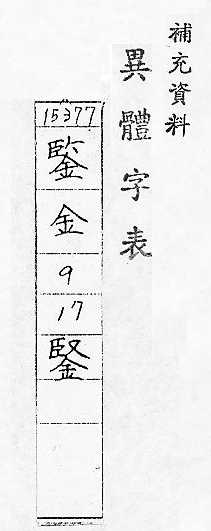 補充資料
異體字表
15377
鍳
金
9
17
鋻